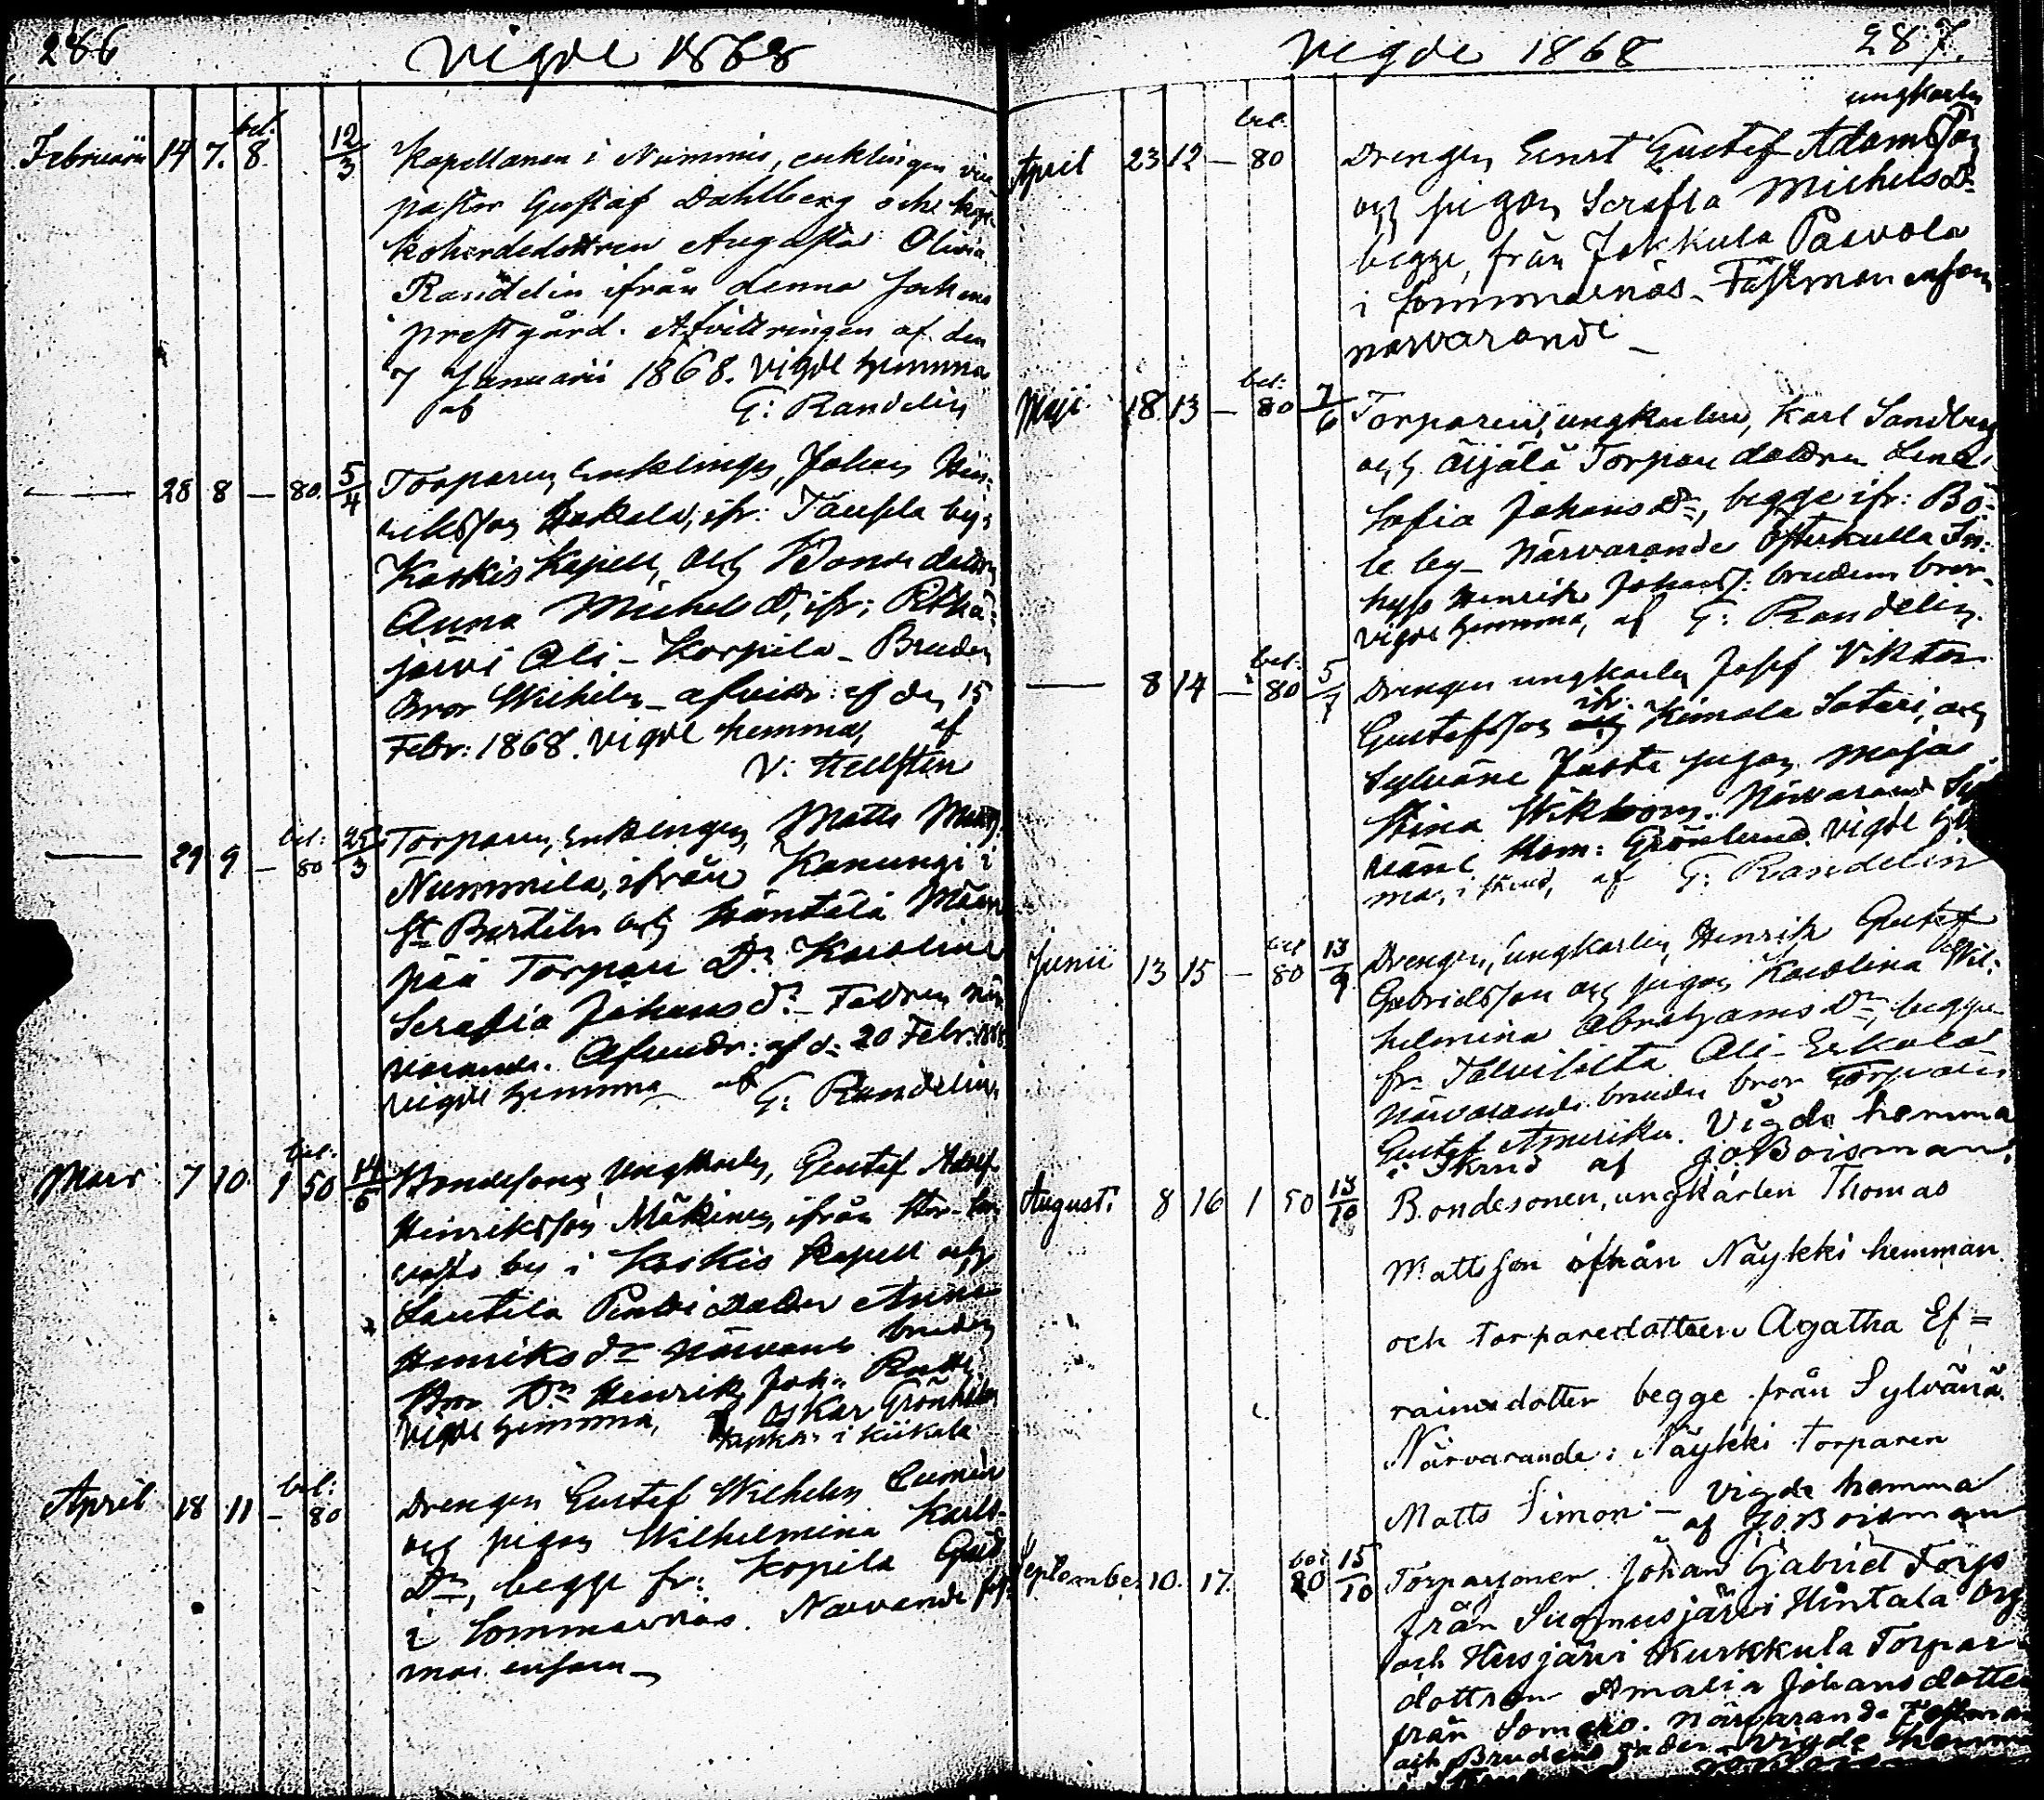 286
Vigde 1868
Februarii 14 7. bet. 8. 12/3 Kapellanen i Nummis, enklingen vice
pastor Gustaf Dahlberg och kyr-
koherdedottren Augusta Olivia
Randelin ifrån denna Sockens
prestgård. Afvittringen af den
7 Januarii 1868. Vigde hemma
af G: Randelin
28 8 – 80. 5/4 Torparen, Enklingen, Johan Hin-
riksson ifr: Taipla by i
Koskis Kapell, och Bonde dottren
Anna Michels D:r, ifr: Pitkä-
järvi Ali-Korpila – Brudens
Bror Wilhelm – afvittr: af den 15
Febr: 1868. Vigde hemma, af
V: Hellsten
29 9 – bet: 80 25/3 Torparen, Enklingen, Matts
Nummila, ifrån Kanungi i
St Bertils och Häntälä
pää Torpare D:r Karolina
Serafia Johans d:r – Fadren när-
varande. Afvittr: af d: 20 Febr. 1868
Vigde hemma af G: Randelin
Mars 7 10 bet. 1 50 14/5 Bondesonen, Ungkarlen, Gustef Adolf
Henriksson Mäkinen, ifrån
by i Koskis Kapell och
Lautela Pentti Anna
Henriks d:r Närvarande brudens
Bror Henrik Joh:
Vigde hemma, af Oskar Grönholm
i Kiikala
April 18 11 – bet: 80 Drengen Gustef Wilhelm
och pigan Wilhelmina Karls
D:r, begge fr: Kopila
i Sommarnäs. Närvarande fäst-
man ensam –
Vigde 1868
287.
April 23 12 – bet. 80 ungkarlen
Drengen Ernst Gustef Adamsson
och pigan Serafia Michels D:r
begge, från Jakkula Pasvola
i Sommarnäs – Fästman ensam
närvarande –
Maji 18 13 – bet: 80 7/6 Torparen, ungkarlen, Karl Sandberg
och Äijälä Torpare dottren Lena
Sofia Johans D:r, begge ifr: Bö-
le by – Närvarande Österkulla In-
hyss Henrik Johanss: brudens bror –
Vigde hemma, af G: Randelin.
8 14 – bet: 80 5/7 Drengen ungkarlen Josef Viktor
Gustefsson ifr. Kimola Satari, och
Sylväne Juste pigan Maja
Stina Wikbom. Närvarande Syl-
väne Kom: Grönlund. Vigde hem-
ma, i Skrud, af G: Randelin
Junii 13 15 – bet 80 13/9 Drengen, Ungkarlen, Henrik Gustef
Gabrielsson och pigan Karolina Wil-
helmina Abrahams D:r, begge
fr: Talvisilta Ali-Erkola
Närvarande brudens bror Torparen
Gustef Amerika. Vigde hemma
i Skrud af J. O. Boisman.
Augusti 8 16 1 50 13/10 Bondesonen, ungkarlen Thomas
Mattsson ifrån Näykki hemman
och torparedottren Agatha Ef=
raimsdotter begge från Sylvänä.
Närvarande: Näykki torparen
Matts Simon – Vigde hemma
af J. O. Boisman
September 10. 17. bet 80 15/10 Torparsonen Johan Gabriel Torp
från Suomusjärvi Hintala
och Hirsjärvi Kurkkula Torpar-
dottren Amalia Johansdotter
från Somero. Närvarande Fästman
och Brudens fader – Vigde hemma